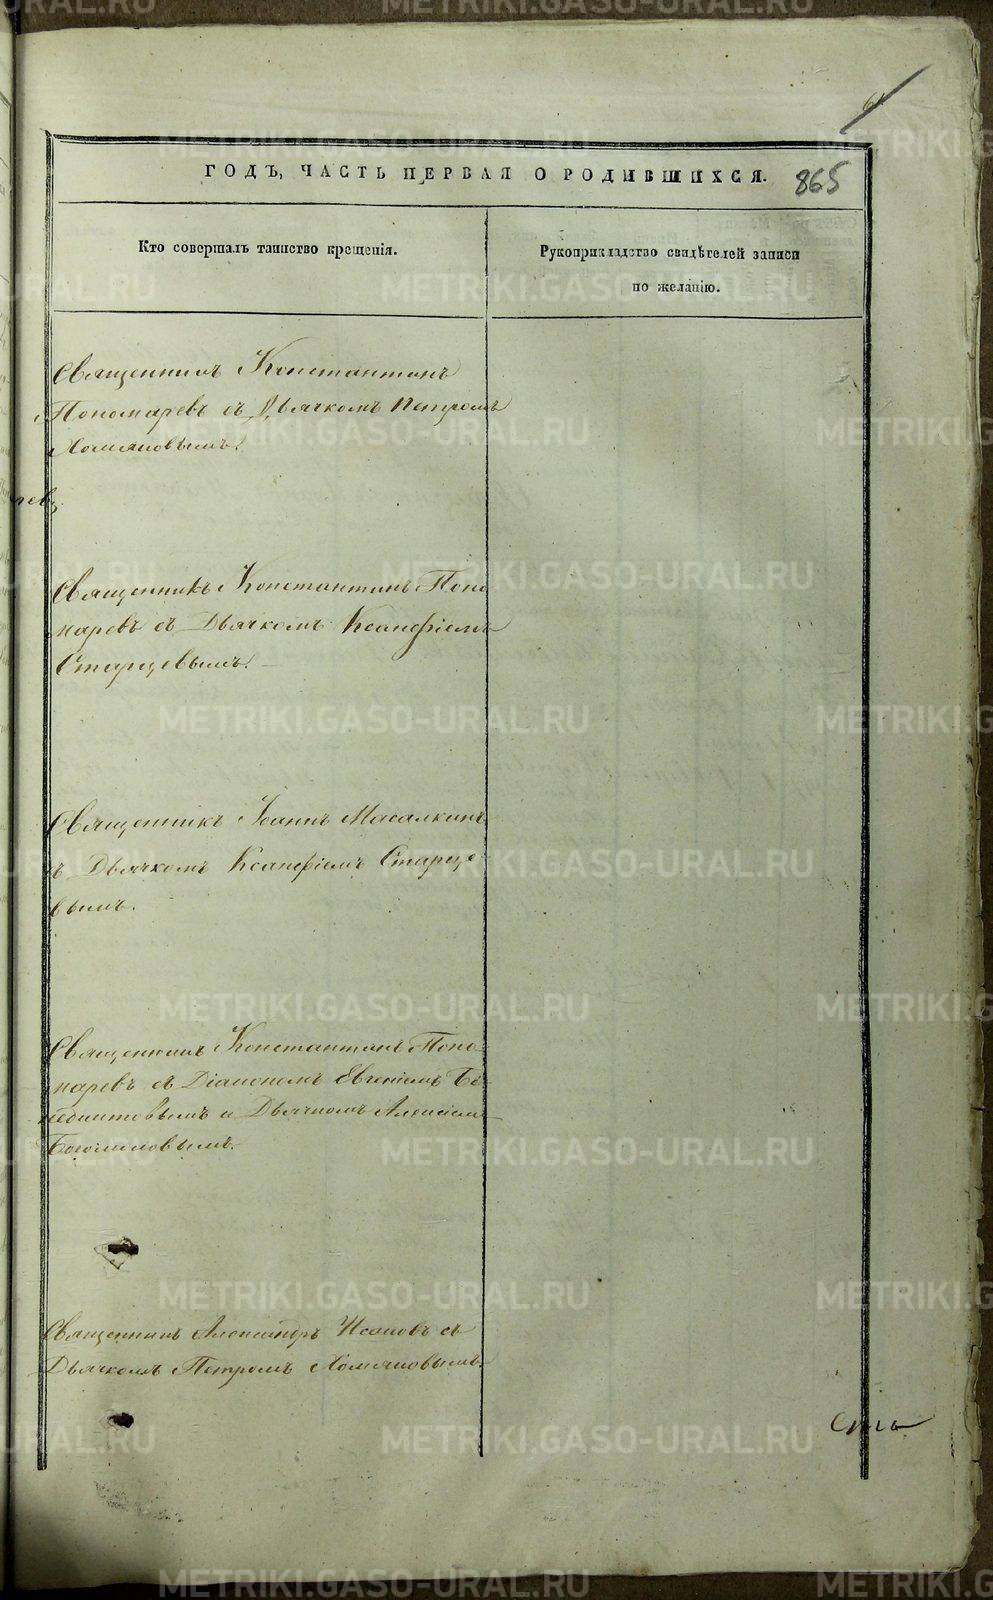 ГОДЪ, ЧАСТЬ ПЕРВАЯ О РОДИВШИХСЯ.
865
Кто совершалъ таинство крещенія.
Рукоприкладство свидѣтелей записи
по желанію.
Священникъ Константинъ
Пономаревъ съ Дьячкомъ Петромъ
Хомяковымъ.
ревъ
Священникъ Константинъ Поно
маревъ съ Дьячкомъ Ксанѳіемъ
Старцевымъ. —
Священникъ Іоаннъ Масалкинъ
съ Дьячкомъ Ксанѳіемъ Старце
вымъ.
Священникъ Константинъ Поно-
маревъ съ Діакономъ Евгеніемъ
и Дьячкомъ Алексіемъ
Священникъ Александръ съ
Дьячкомъ Петромъ Хомяковымъ.
METRIKI.GASO-URAL.RU